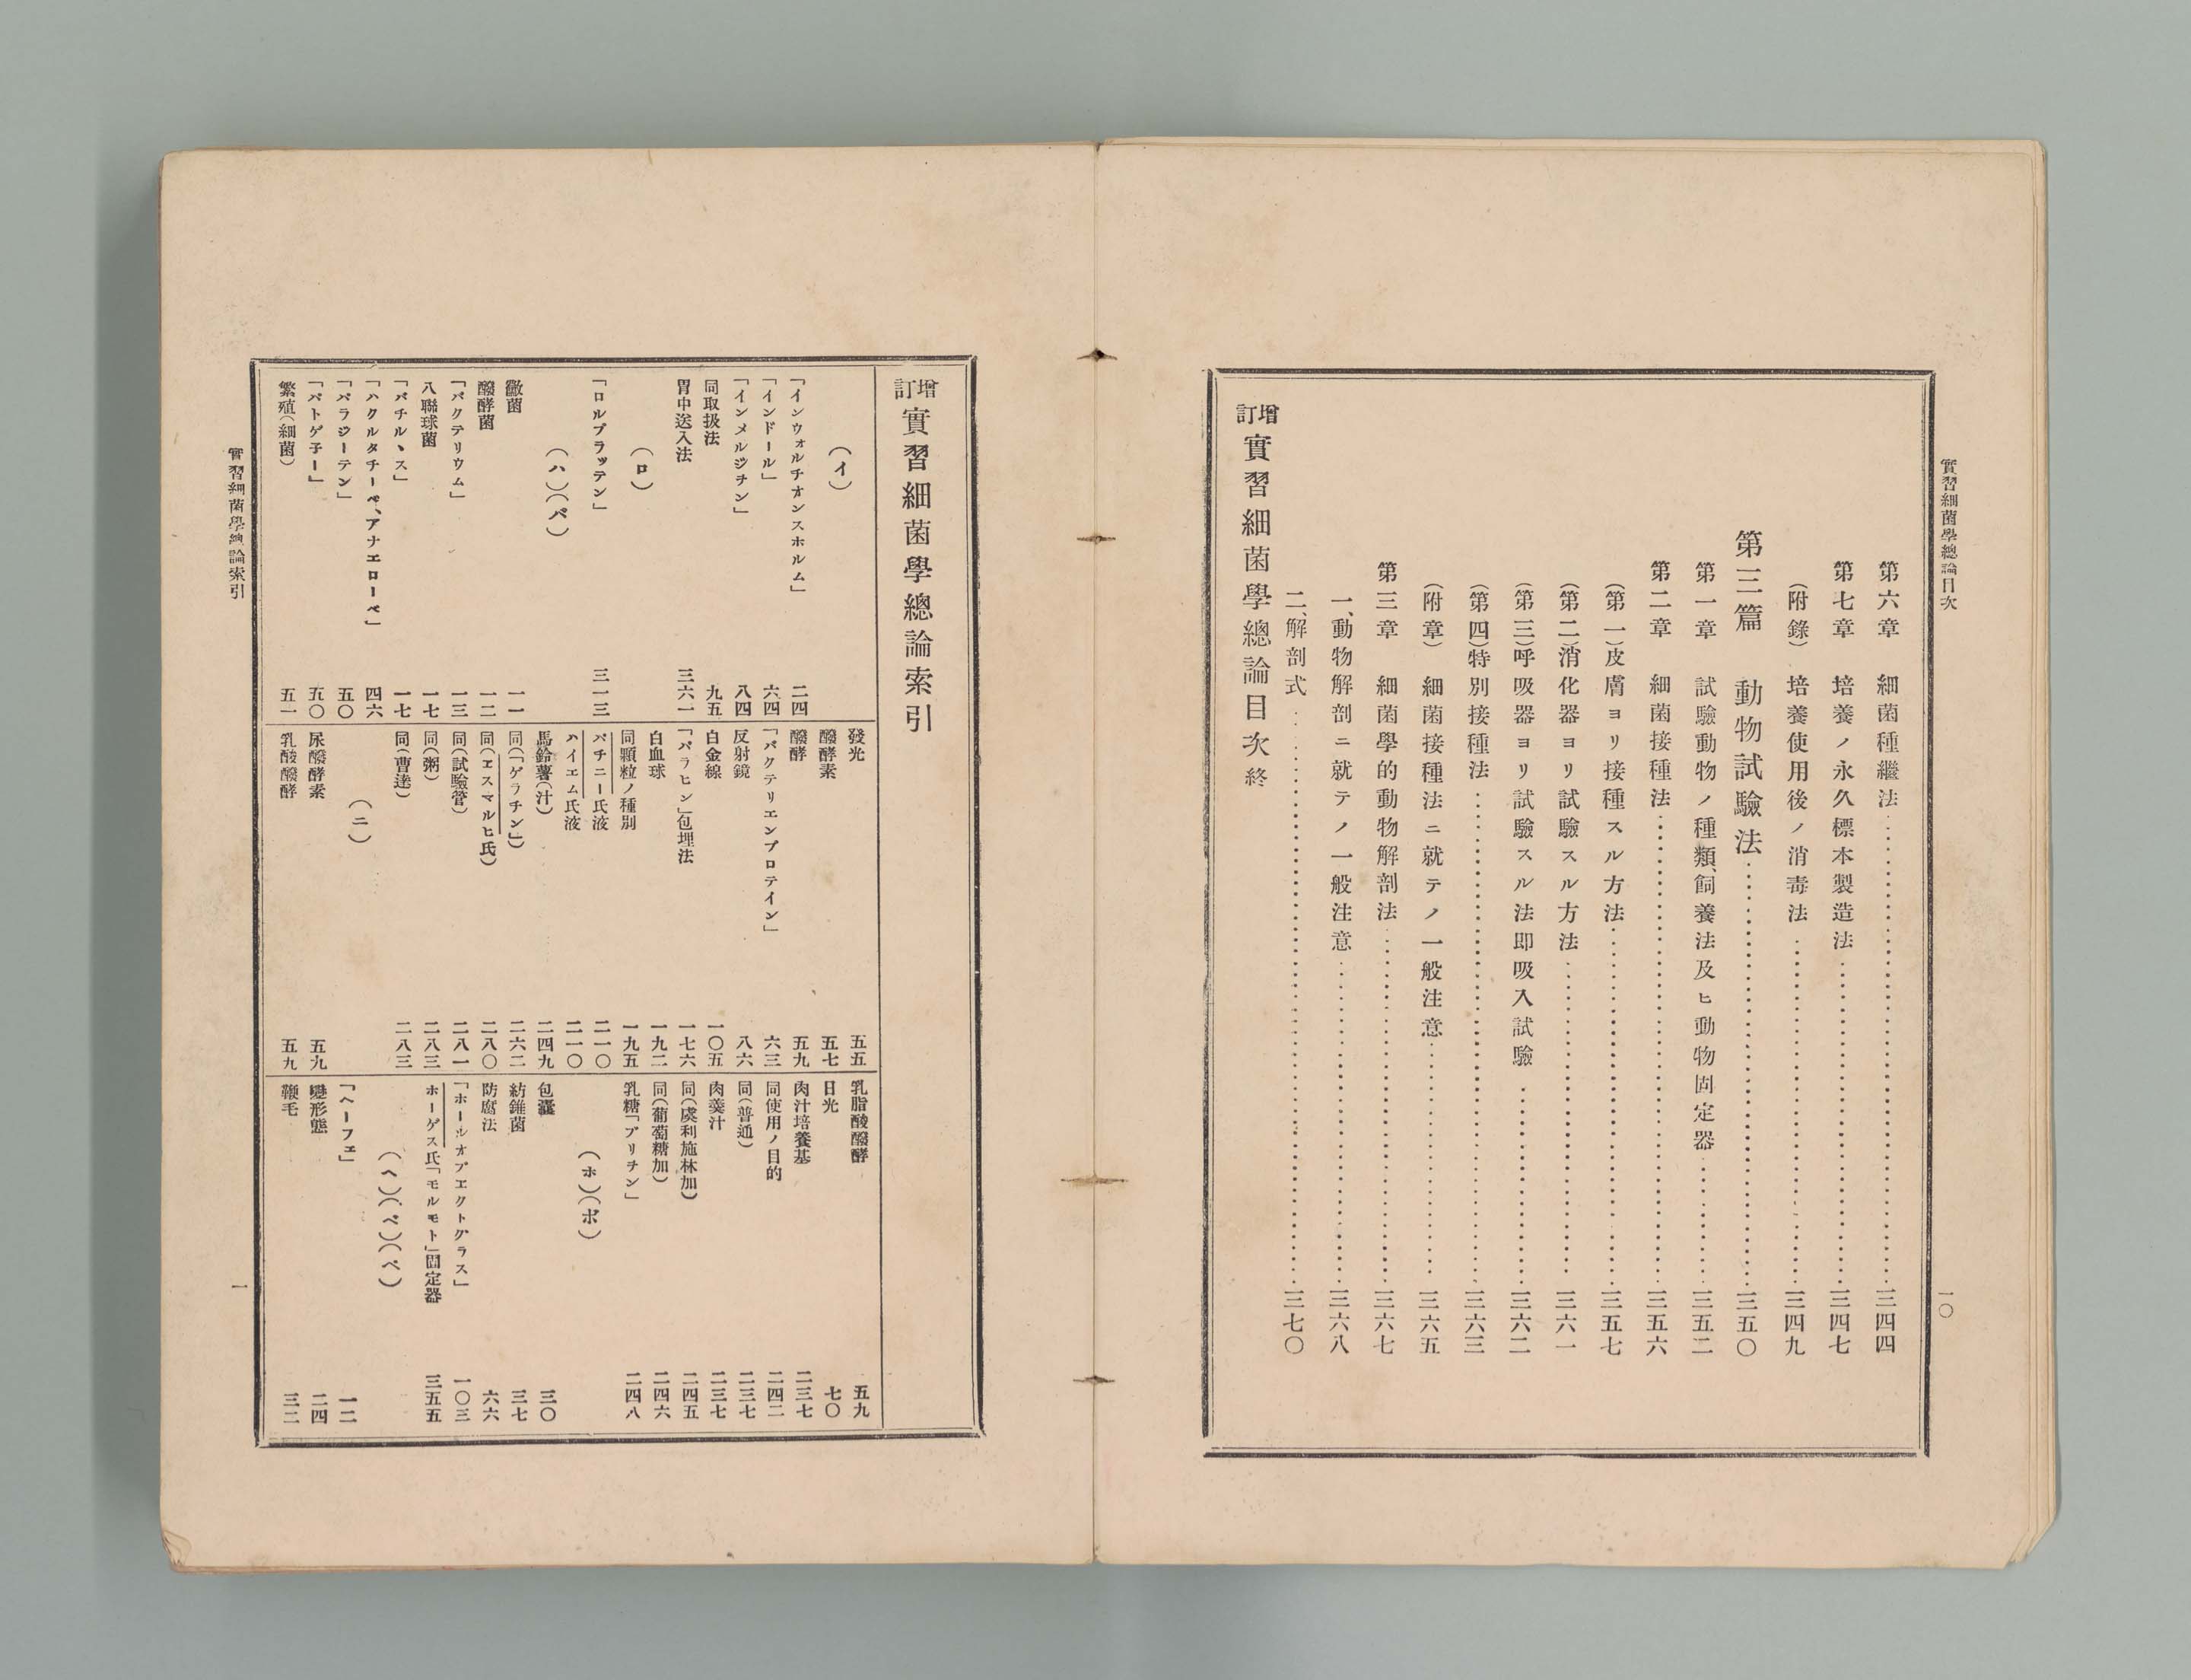 實習細菌學總論目次
一〇
第六章　細菌種繼法…………三四四
第七章　培養ノ永久標本製造法…………三四七
（附錄）　培養使用後ノ消毒法…………三四九
第三篇　動物試驗法…………三五〇
第一章　試驗動物ノ種類、飼養法及ヒ動物固定器…………三五二
第二章　細菌接種法…………三五六
（第一）皮膚ヨリ接種スル方法…………三五七
（第二）消化器ヨリ試驗スル方法…………三六一
（第三）呼吸器ヨリ試驗スル法即吸入試驗…………三六二
（第四）特別接種法…………三六三
（附章）　細菌接種法ニ就テノ一般注意…………三六五
第三章　細菌學的動物解剖法…………三六七
一、動物解剖ニ就テノ一般注意…………三六八
二、解剖式…………三七〇
增訂實習細菌學總論目次終
增訂實習細菌學總論索引
（イ）
「インウォルチオンスホルム」　二四
「インドール」　六四
「インメルジチン」　八四
同取扱法　九五
胃中送入法　三六一
（ロ）
「ロルプラッテン」　三一三
（ハ）（パ）
黴菌　一一
醱酵菌　一二
「バクテリウム」　一三
八聯球菌　一七
「バチルヽス」　一七
「ハクルタチーベ、アナエローベ」　四六
「パラジーテン」　五〇
「パトゲ子ー」　五〇
繁殖（細菌）　五一
發光　五五
醱酵素　五七
醱酵　五九
「バクテリエンプロテイン」　六三
反射鏡　八六
白金線　一〇五
「パラヒン」包埋法　一七六
白血球　一九二
同顆粒ノ種別　一九五
パチニー氏液　二一〇
ハイエム氏液　二一〇
馬鈴薯（汁）　二四九
同（「ゲラチン」）　二六二
同（エスマルヒ氏）　二八〇
同（試驗管）　二八一
同（粥）　二八三
同（曹達）　二八三
（ニ）
尿醱酵素　五九
乳酸醱酵　五九
乳脂酸醱酵　五九
日光　七〇
肉汁培養基　二三七
同使用ノ目的　二四二
同（普通）　二三七
肉羹汁　二三七
同（虞利施林加）　二四五
同（葡萄糖加）　二四六
乳糖「ブリチン」　二四八
（ホ）（ボ）
包囊　三〇
紡錐菌　三七
防腐法　六六
「ホールオブエクトグラス」　一〇三
ホーゲス氏「モルモト」固定器　三五五
（ヘ）（ベ）（ペ）
「ヘーフェ」　一二
變形態　二四
鞭毛　三二
實習細菌學總論索引
一